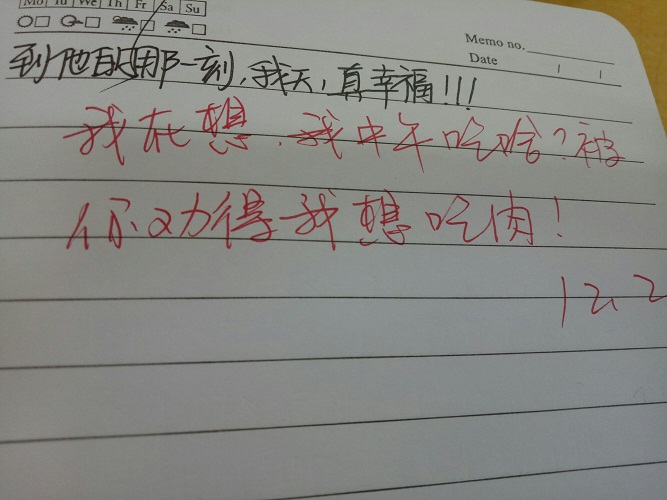 Mo Tu We Th Fr Sa Su
Memo no.
Date / /
到他的那一刻,我天,真幸福!!!
我在想,我中午吃啥?被
你劝得我想吃肉!
12.2